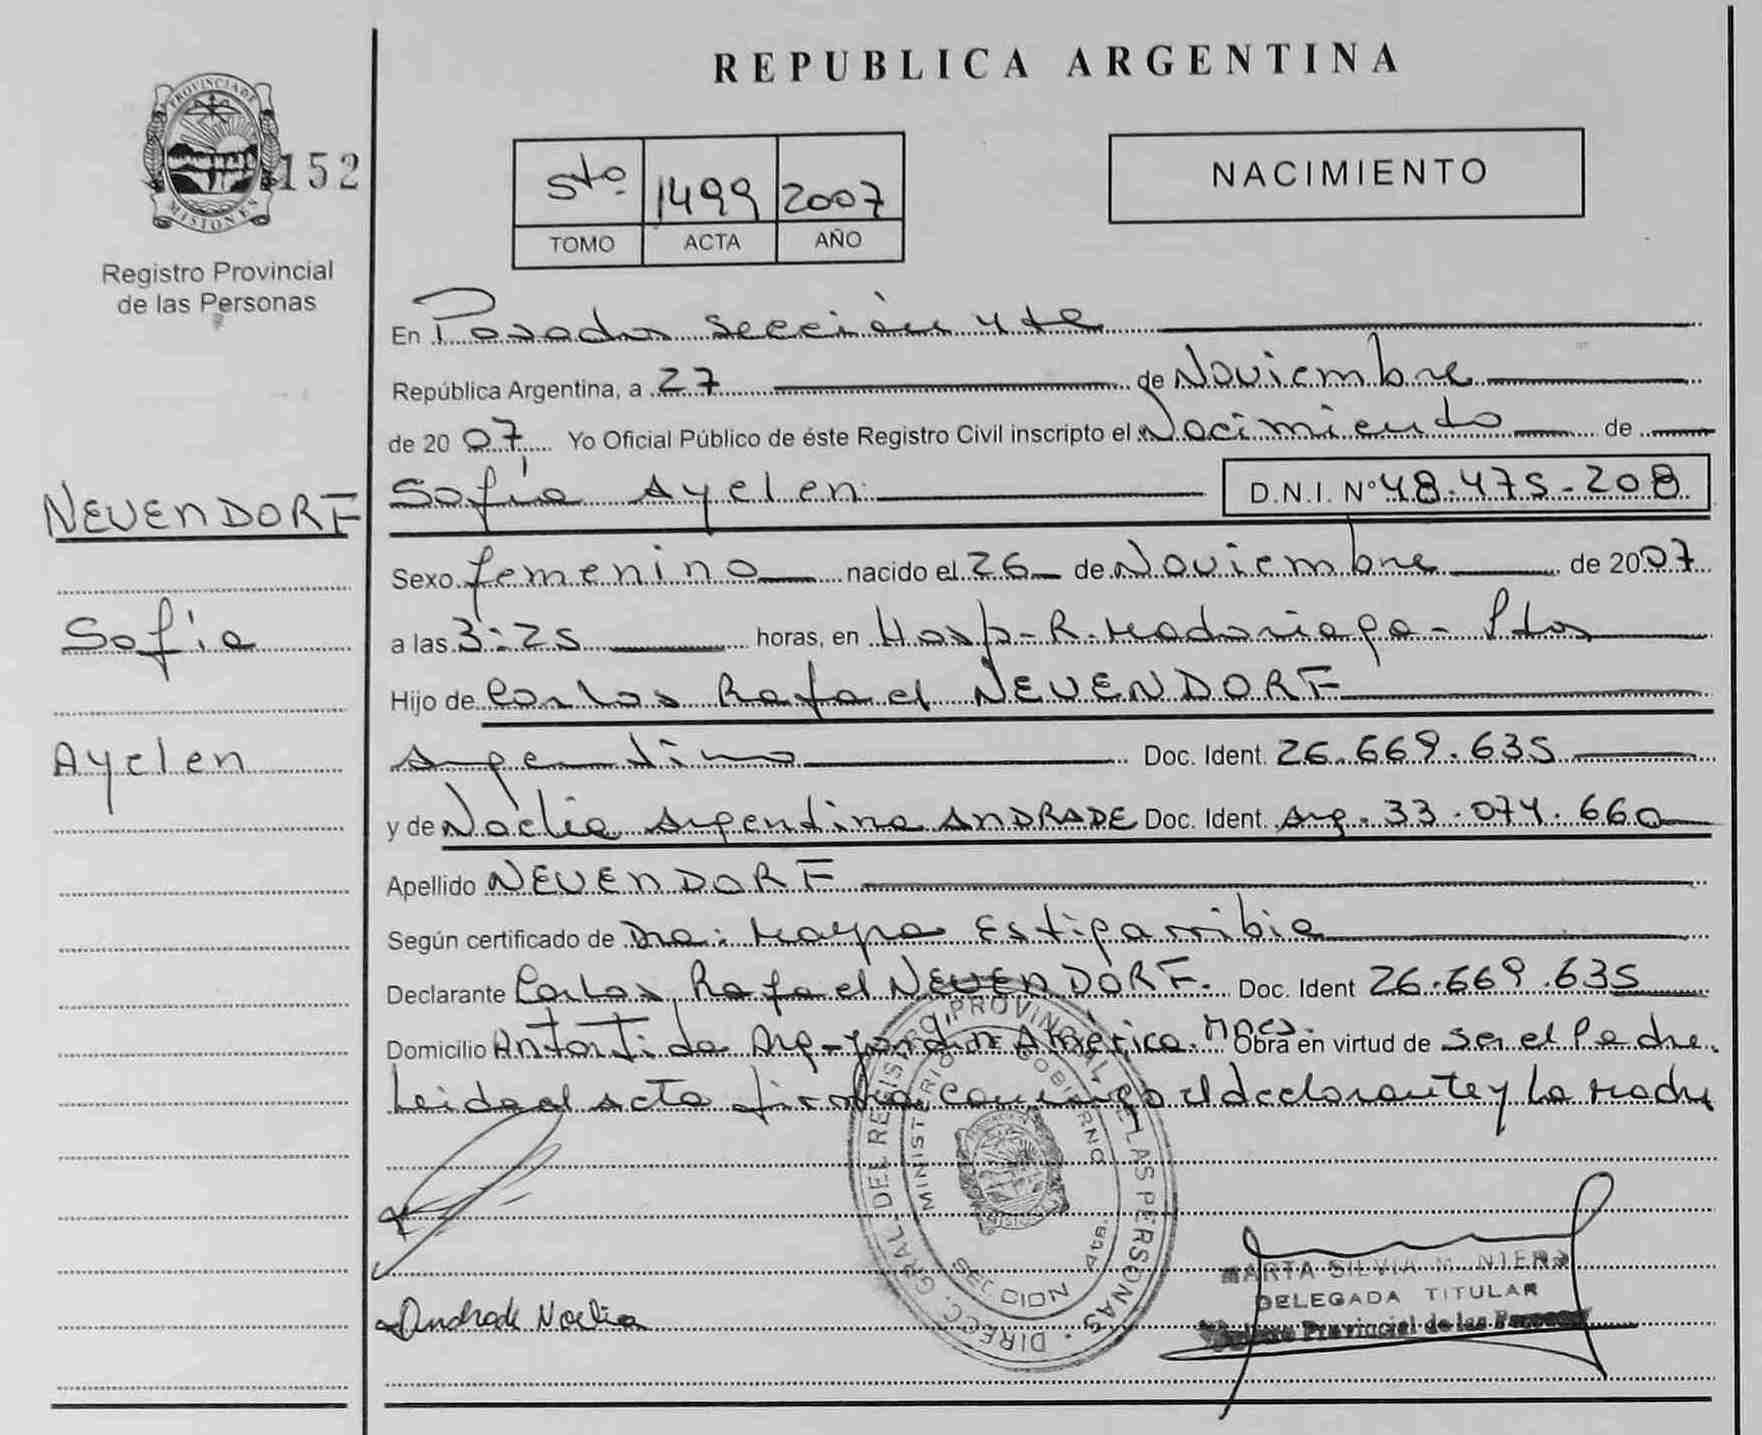 REPUBLICA ARGENTINA
PROVINCIA DE
MISIONES
152
Registro Provincial
de las Personas
5to 1499 2007
TOMO ACTA AÑO
NACIMIENTO
En Posadas Sección 4ta
República Argentina, a 27 de Noviembre
de 2007 Yo Oficial Público de éste Registro Civil inscripto el Nacimiento de
NEUENDORF
Sofía Ayelen D.N.I. Nº 48.475.208
Sexo femenino nacido el 26 de Noviembre de 2007
Sofía
a las 3:25 horas, en Hosp. R. Madariaga - Pdas
Hijo de Carlos Rafael NEUENDORF
Ayelen
Argentino Doc. Ident. 26.669.635
y de Noelia Argentina ANDRADE Doc. Ident. Arg. 33.074.660
Apellido NEUENDORF
Según certificado de Dra. Mayra Estigarribia
Declarante Carlos Rafael NEUENDORF. Doc. Ident 26.669.635
Domicilio Antartida Arg - Jardin América. Mnes. Obra en virtud de ser el Padre.
Leida el acta firman conmigo el declarante y la Madre
DIRECC. GRAL DEL REGISTRO PROVINCIAL DE LAS PERSONAS
MINISTERIO GOBIERNO
SECCION 4ta.
MARTA SILVIA M.
DELEGADA TITULAR
Registro Provincial de las Personas
Andrade Noelia